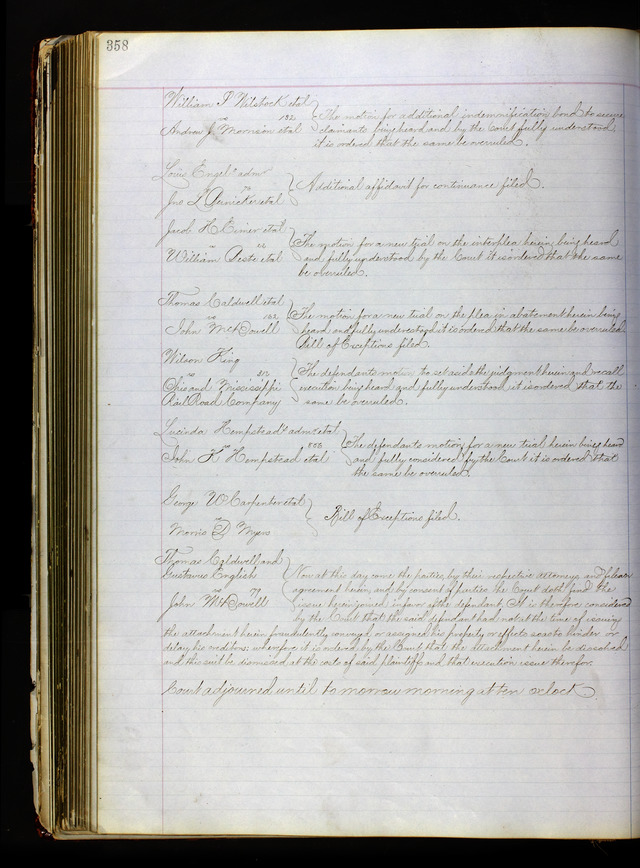 358
William P. Wilstock etal
vs 132 The motion for additional indemnification bond to secure
Andrew J. Morrison etal claimants being heard and by the Court fully understood
it is ordered that the same be overruled.
Louis Engel's admr
vs 70 Additional affidavit for continuance filed.
Jno L. etal
Jacob H. Eimer etal
vs The motion for a new trial on the interplea herein being heard
William etal and fully understood by the Court it is ordered that the same
be overruled.
Thomas Caldwell etal
vs 132 The motion for a new trial on the plea in abatement herein being
John McDowell heard and fully understood it is ordered that the same be overruled
Bill of Exceptions filed.
Wilson King
vs 313 The defendants motion to set aside the judgment herein and recall
Ohio and Mississippi execution being heard and fully understood it is ordered that the
Rail Road Company same be overruled.
Lucinda Hempstead's admr etal
vs 806 The defendants motion for a new trial herein being heard
John K Hempstead etal and fully considered by the Court it is ordered that
the same be overruled.
George W Carpenter etal
vs Bill of Exceptions filed.
Morris D Myers
Thomas Caldwell and
Gustavus English Now at this day come the parties by their respective attorneys and file an
vs 79 agreement herein, and by consent of parties the Court doth find the
John McDowell issue herein joined in favor of the defendant. It is therefore considered
by the Court that the said defendant had not at the time of issuing
the attachment herein fraudulently conveyed or assigned his property or effects so as to hinder or
delay his creditors: wherefore it is ordered by the Court that the attachment herein be dissolved
and this suit be dismissed at the costs of said plaintiffs and that execution issue therefor.
Court adjourned until tomorrow morning at ten oclock.